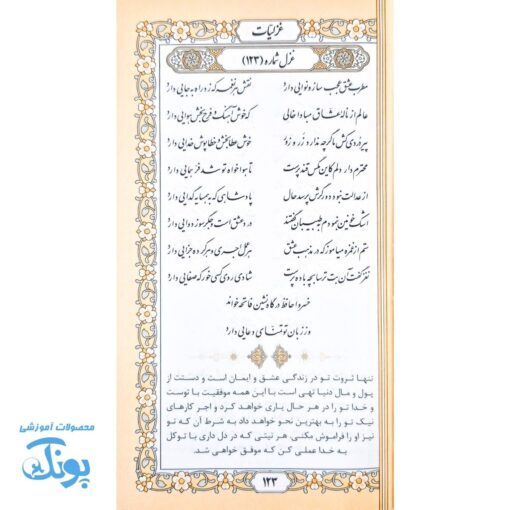 غزلیات
غزل شماره (۱۲۳)
مطرب عشق عجب ساز و نوایی دارد نقش هر نغمه که زد راه به جایی دارد
عالم از ناله عشاق مبادا خالی که خوش آهنگ و فرح بخش هوایی دارد
پیر دردی کش ما گرچه ندارد زر و زور خوش عطابخش و خطاپوش خدایی دارد
محترم دار دلم کاین مگس قندپرست تا هواخواه تو شد فر همایی دارد
از عدالت نبود دور گرش پرسد حال پادشاهی که به همسایه گدایی دارد
اشک خونین بنمودم به طبیبان گفتند درد عشق است و جگرسوز دوایی دارد
ستم از غمزه میاموز که در مذهب عشق هر عمل اجری و هر کرده جزایی دارد
نغز گفت آن بت ترسابچه باده پرست شادی روی کسی خور که صفایی دارد
خسروا حافظ درگاه نشین فاتحه خواند
وز زبان تو تمنای دعایی دارد
تنها ثروت تو در زندگی عشق و ایمان است و دستت از
پول و مال دنیا تهی است با این همه موفقیت با توست
و خدا تو را در هر حال یاری خواهد کرد و اجر کارهای
نیک تو را به بهترین نحو خواهد داد به شرط آن که تو
نیز او را فراموش مکنی. هر نیتی که در دل داری با توکل
به خدا عملی کن که موفق خواهی شد.
۱۲۳
محصولات آموزشی
پونک